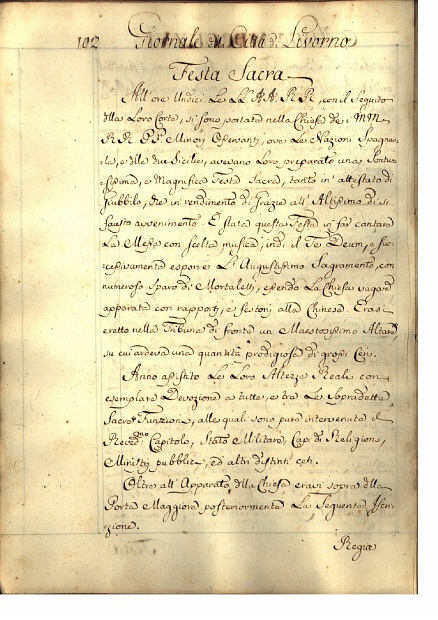 102 Giornale della Città di Livorno
Festa Sacra
All'ore Undici Le LL. AA. RR, con il Seguito
della Loro Corte, si sono portate nella Chiesa de i MM.
RR. PP. Minori Osservanti, ove Le Nazioni Spagnuo-
la, e delle due Sicilie, avevano Loro preparato una Sontuo-
sissima, e Magnifica Festa Sacra, tanto in attestato di
Giubbilo, che in rendimento di Grazie all'Altissimo di sì
fausto avvenimento. È stata questa Festa in far cantare
La Messa con scelta musica, indi il Te Deum, e suc-
cessivamente esporre L'Augustissimo Sagramento, con
numeroso sparo di Mortaletti, essendo La Chiesa vagam.
apparata con rapporti, e festoni alla Chinese. Erasi
eretto nella Tribuna di fronte un Maestosissimo Altare,
su cui ardeva una quantità prodigiosa di grossi Ceri.
Anno assistito Le Loro Altezze Reali con
esemplare Devozione a tutte, e tre Le Sopradette
Sacre Funzioni, alle quali sono pure intervenute il
Reverd.mo Capitolo, Stato Militare, Capi di Religione,
Ministri pubblici, ed altri distinti ceti.
Oltre all'Apparato della Chiesa eravi sopra della
Porta Maggiore posteriormente La Seguente Iscri-
zione.
Regiæ